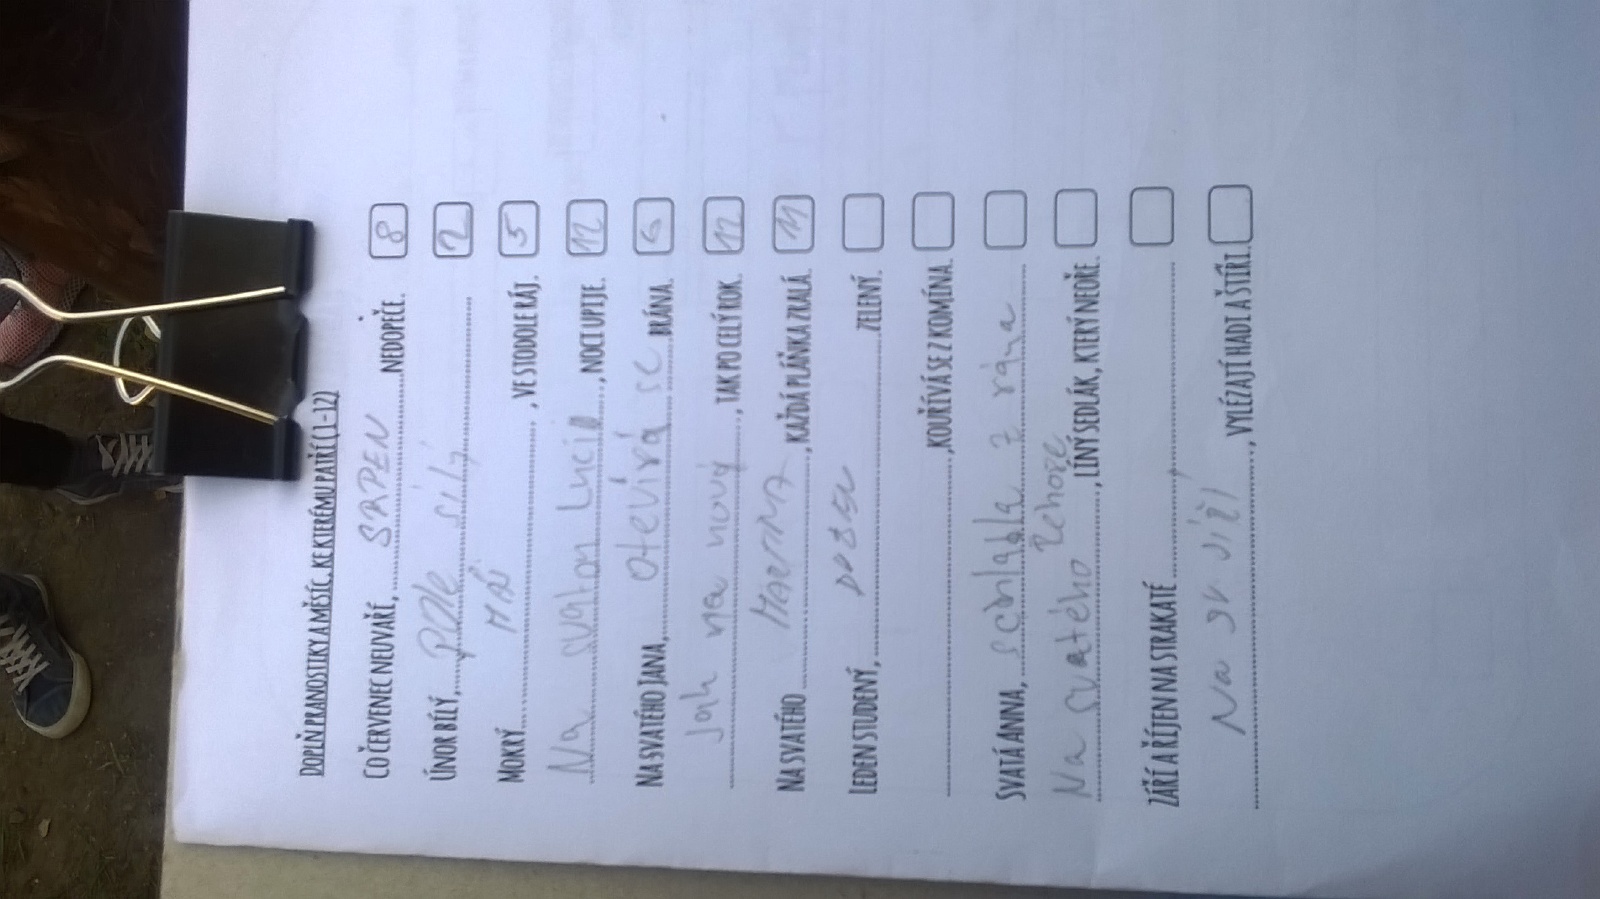 DOPLŇ PRANOSTIKY A MĚSÍC, KE KTERÉMU PATŘÍ (1-12)
CO ČERVENEC NEUVAŘÍ, SRPEN NEDOPEČE. 8
ÚNOR BÍLÝ, POLE SÍLÍ 2
MOKRÝ MÁJ, VE STODOLE RÁJ. 5
Na svatou Lucii, NOC UPIJE. 12
NA SVATÉHO JANA, otevírá se BRÁNA. 6
Jak na nový, TAK PO CELÝ ROK. 12
NA SVATÉHO MARTINA, KAŽDÁ PLÁŇKA ZRALÁ. 11
LEDEN STUDENÝ, DUBEN ZELENÝ.
, KOUŘÍVÁ SE Z KOMÍNA.
SVATÁ ANNA, schladla z rána
Na svatého Řehoře, LÍNÝ SEDLÁK, KTERÝ NEOŘE.
ZÁŘÍ A ŘÍJEN NA STRAKATÉ
Na sv Jiří, VYLÉZAJÍ HADI A ŠTÍŘI.